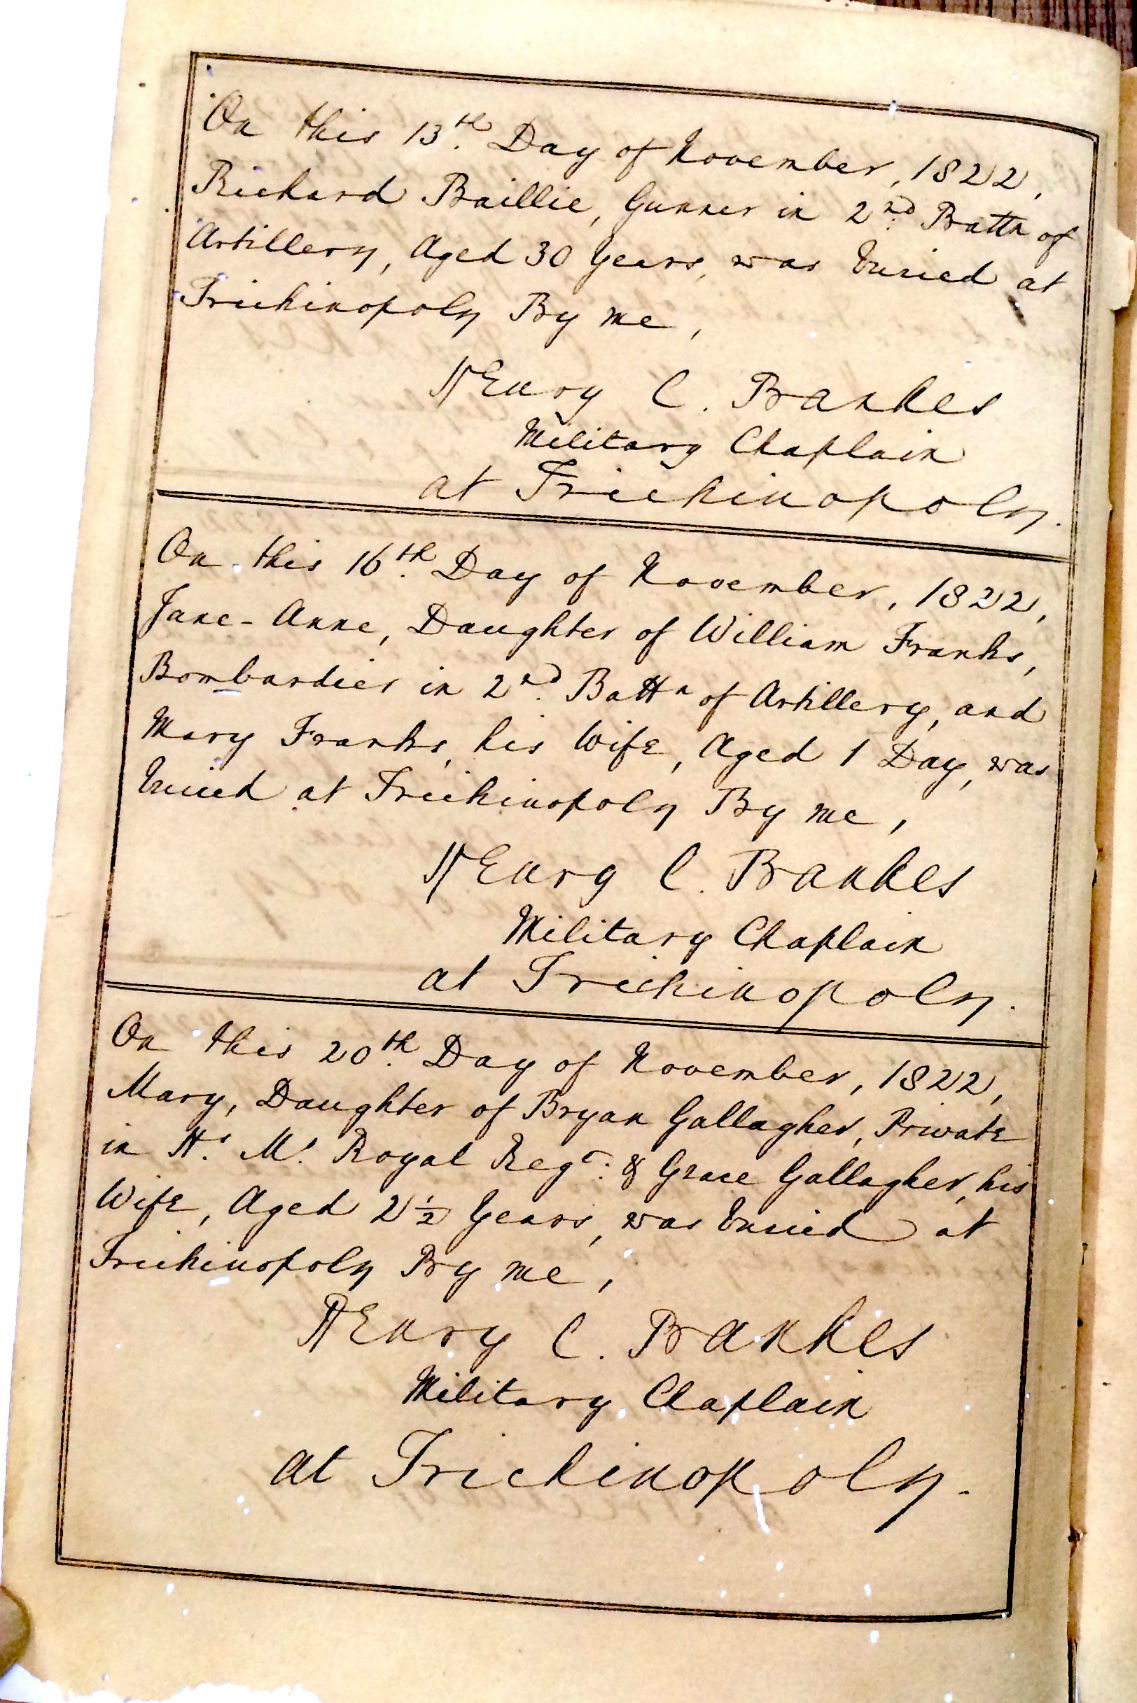 On this 13th. Day of November, 1822,
Richard Baillie, Gunner in 2nd. Battn of
Artillery, Aged 30 Years, was buried at
Trichinopoly By me,
HEnry C. Bankes
Military Chaplain
at Trichinopoly.
On this 16th. Day of November, 1822,
Jane-Anne, Daughter of William Franks,
Bombardier in 2nd. Battn of Artillery, and
Mary Franks, his Wife, Aged 1 Day, was
buried at Trichinopoly By me,
HEnry C. Bankes
Military Chaplain
at Trichinopoly.
On this 20th. Day of November, 1822,
Mary, Daughter of Bryan Gallagher, Private
in H.s M.s Royal Regt. & Grace Gallagher, his
Wife, Aged 2½ Years, was buried at
Trichinopoly By me,
HEnry C. Bankes
Military Chaplain
at Trichinopoly.